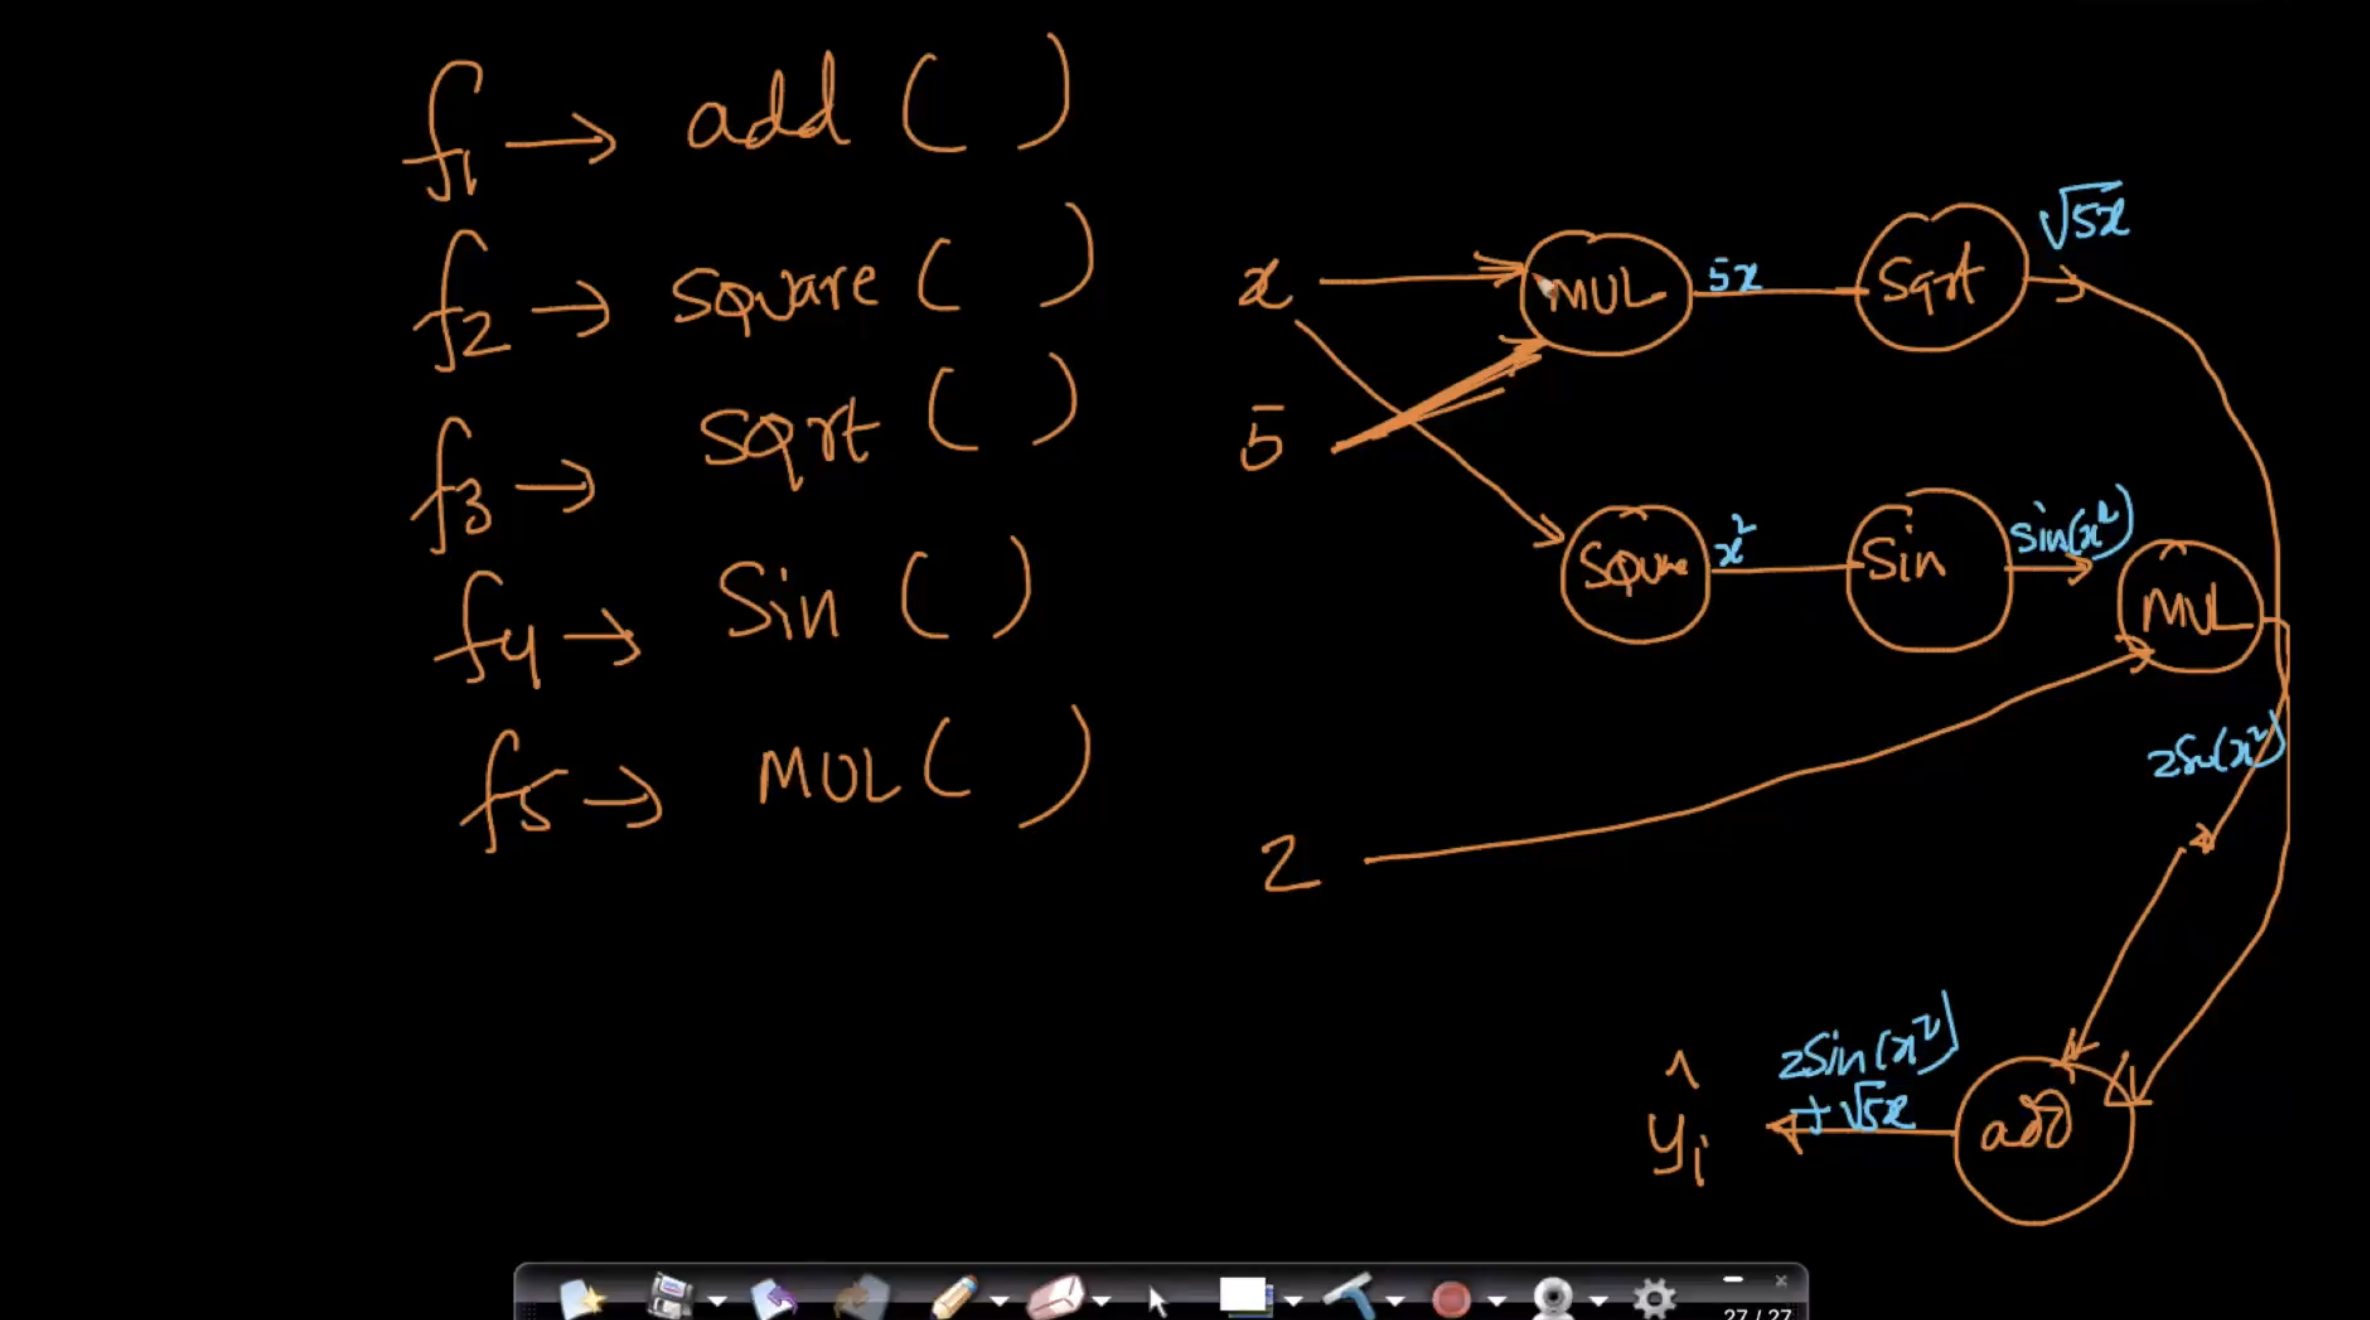 f1 → add ( )
f2 → square ( )
f3 → sqrt ( )
f4 → Sin ( )
f5 → MUL ( )
x
5
2
MUL
5x
Sqrt
√5x
Square
x²
Sin
Sin(x²)
MUL
2Sin(x²)
add
2Sin(x²)
+ √5x
ŷi
27 / 27